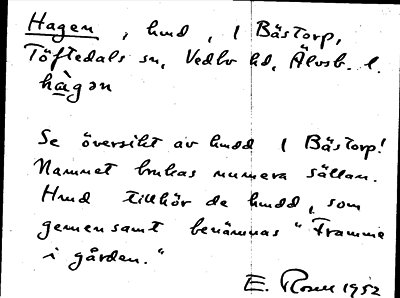 Hagen, hmd, i Bästorp,
Töftedals sn, Vedbo hd, Älvsb. l.
hàgən
Se översikt av hmdd i Bästorp!
Namnet brukas numera sällan.
Hmd tillhör de hmdd, som
gemensamt benämnas "Framme
i gården."
E. Rosen 1952